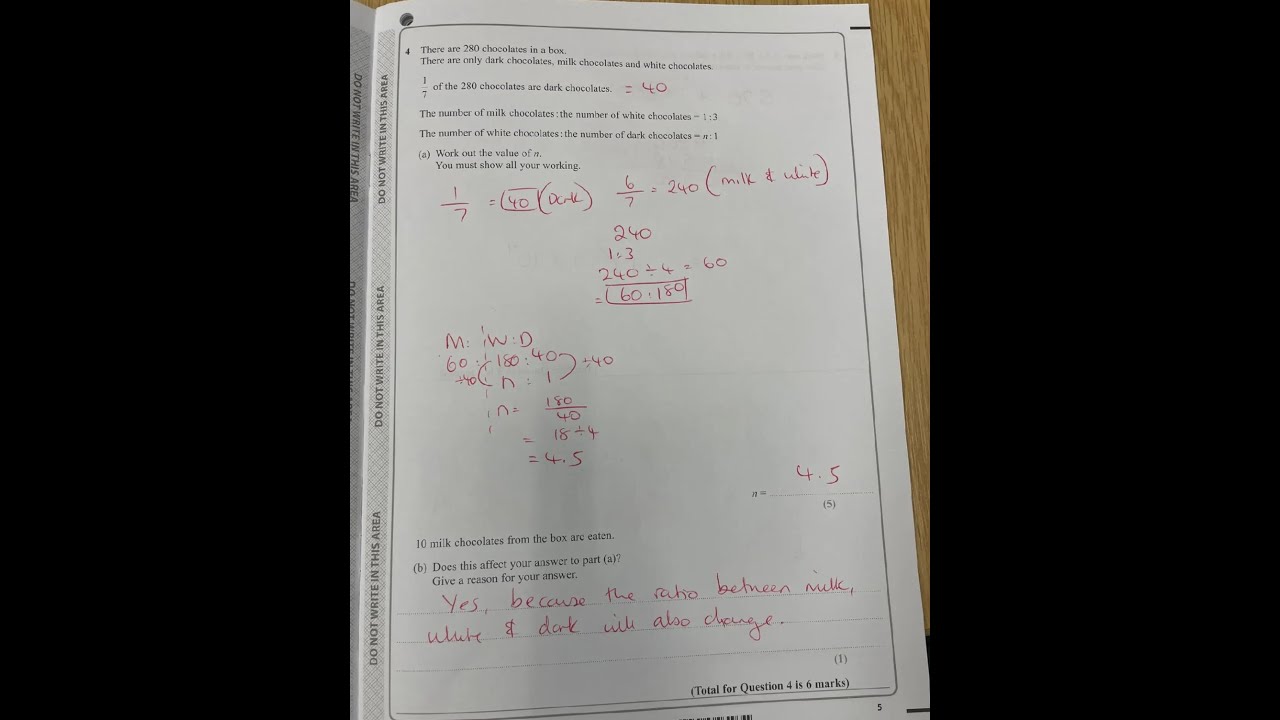 4 There are 280 chocolates in a box.
There are only dark chocolates, milk chocolates and white chocolates.
1/7 of the 280 chocolates are dark chocolates. = 40
The number of milk chocolates : the number of white chocolates = 1 : 3
The number of white chocolates : the number of dark chocolates = n : 1
(a) Work out the value of n.
You must show all your working.
1/7 = 40 (Dark) 6/7 = 240 (milk & white)
240
1:3
240 ÷ 4 = 60
= 60:180
M: W:D
60 : 180 : 40 ÷40
÷40 n : 1
n = 180/40
= 18 ÷ 4
= 4.5
4.5
n =
(5)
10 milk chocolates from the box are eaten.
(b) Does this affect your answer to part (a)?
Give a reason for your answer.
Yes, because the ratio between milk,
white & dark will also change.
(1)
(Total for Question 4 is 6 marks)
5
DO NOT WRITE IN THIS AREA
DO NOT WRITE IN THIS AREA
DO NOT WRITE IN THIS AREA
DO NOT WRITE IN THIS AREA
DO NOT WRITE IN THIS AREA